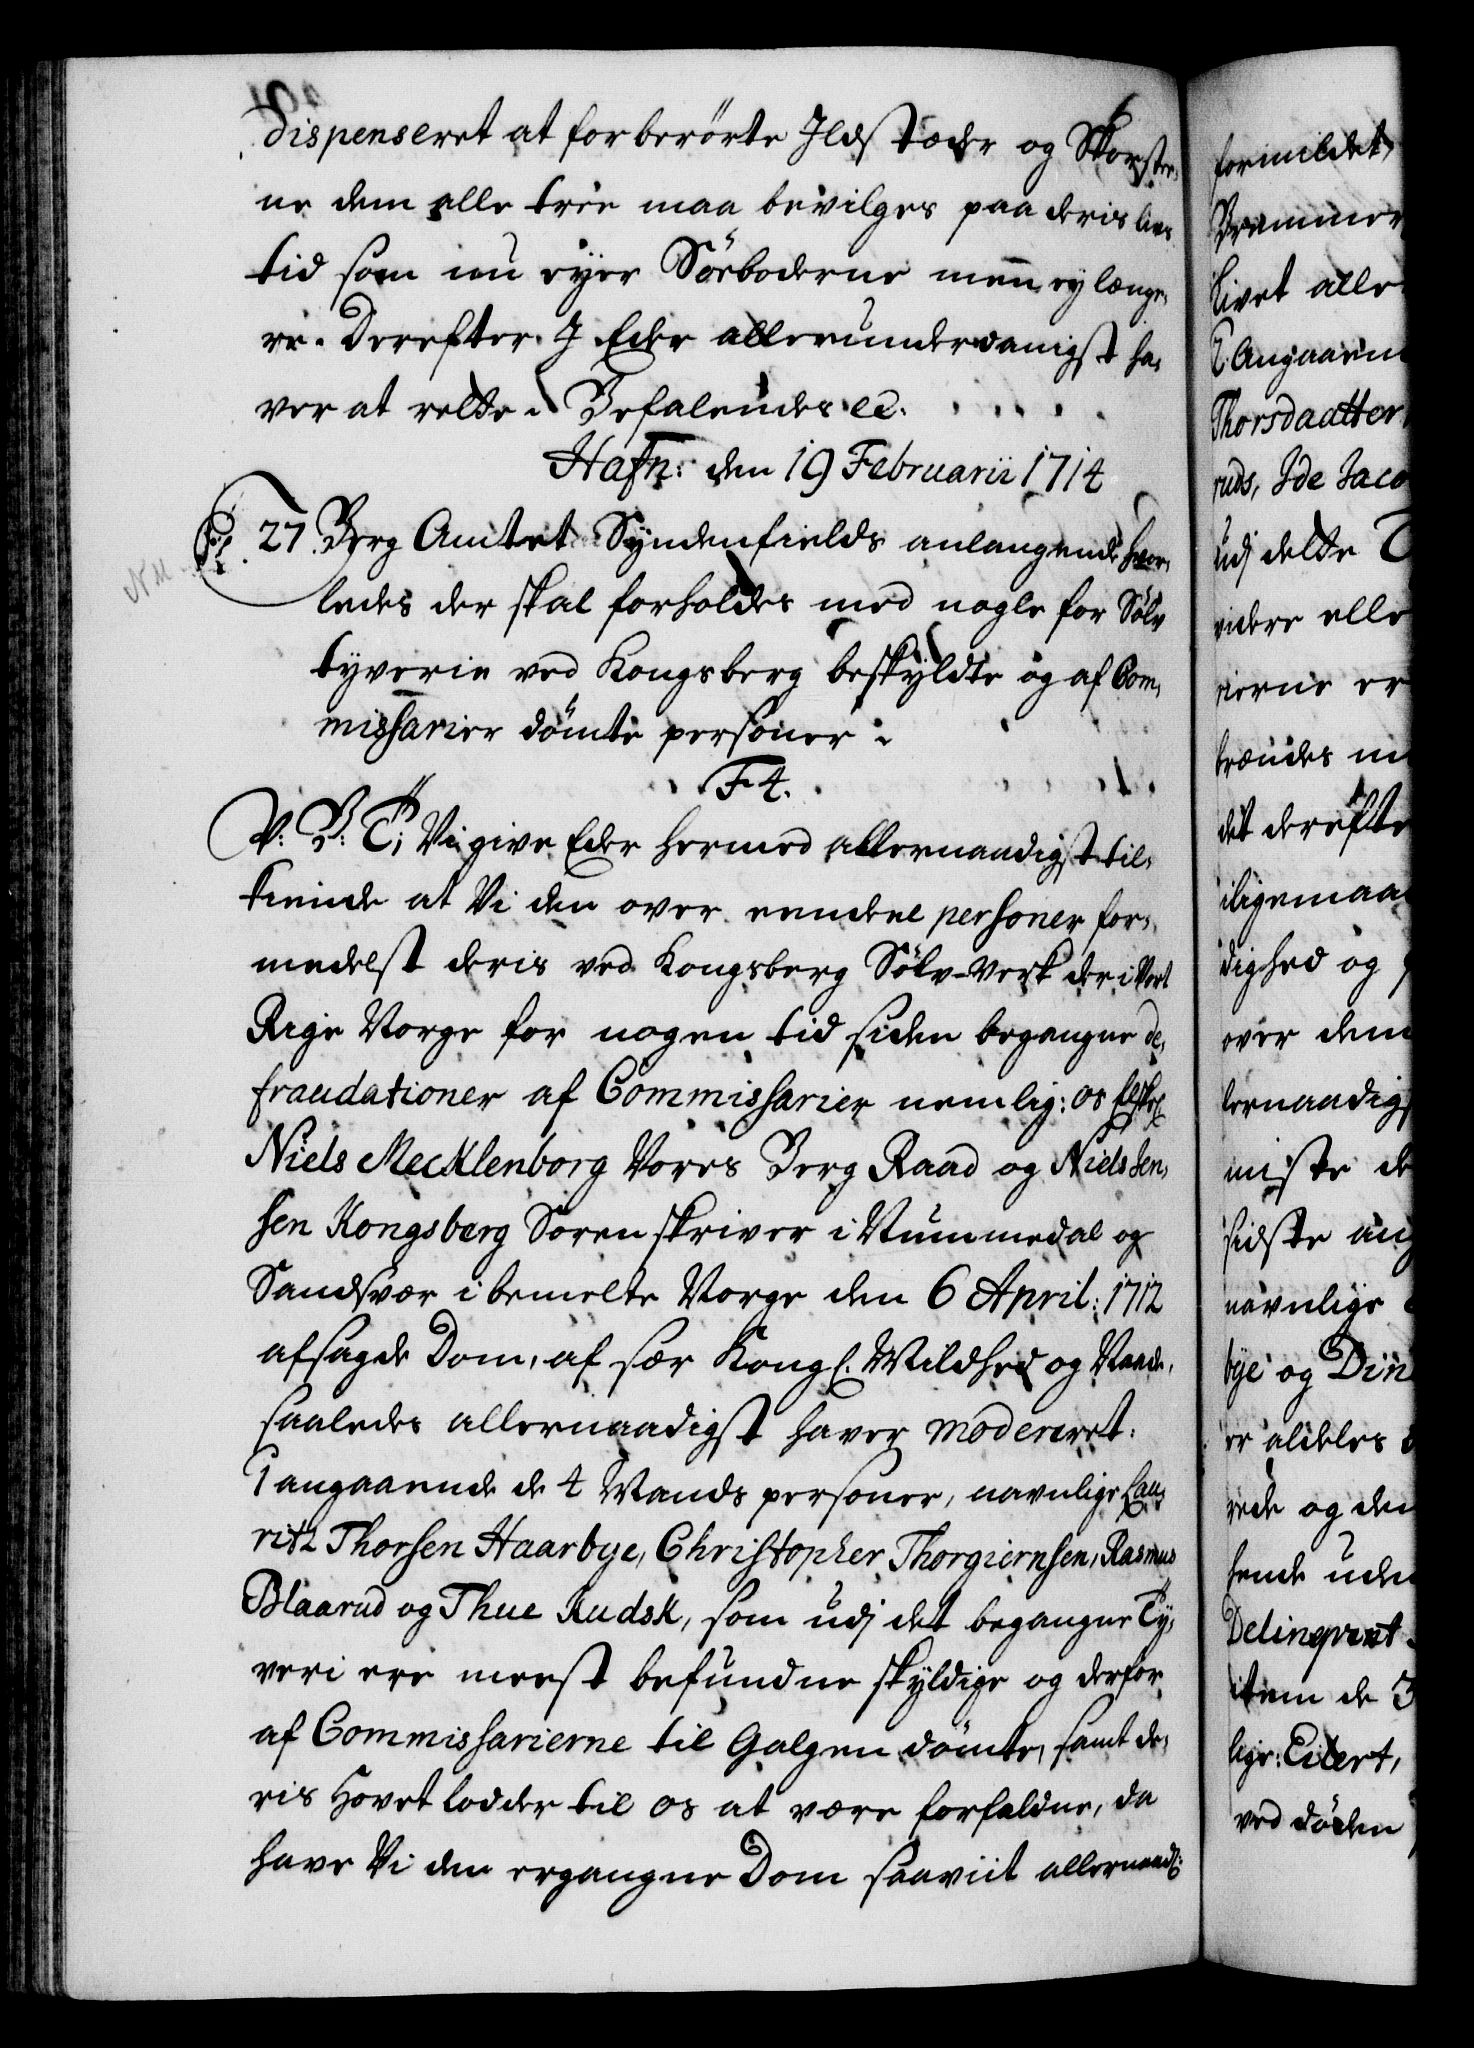 dispenseret at forberörte Ildstæder og Skorstee,
ne dem alle tree maa bevilges paa deris livs
tid som nu eyer Söeboderne menn ey længe,
re. Derefter I Eder allerunderdanigst ha,
ver at rette. Befalendes ec.
Hafn: den 19 Februarii 1714
27. Berg Amtet Syndenfields anlangende hvor,
ledes der skal forholdes med nogle for Sölv
tyverie ved Kongsberg beskyldte og af Com,
missarier dömte personer.
F4.
V: B: T; Vi give Eder hermed allernaadigst til,
kiende at Vi den over eendeel personer for,
medelst deris ved Kongsberg Sölv-Verk der i Vort
Rige Norge for nogen tid siden begangne de,
fraudationer af Commissarier nemlig: os Elskel
Niels Mecklenborg Vores Berg Raad og Niels Jen,
sen Kongsberg Sorenskriver i Nummedal og
Sandsvær i bemelte Norge den 6 April: 1712
afsagde Dom, af sær Kongl. Mildhed og Naade,
saaledes allernaadigst haver modereret.
1 angaaende de 4 Mands personer, navnlige Lau,
ritz Thorsen Haarbye, Christopher Thorgiernsen, Rasmus
Blaarud og Thue Rudsk, som udj det begangne Ty,
veri ere meest befundne skyldige og derfor
af Commissarierne til Galgen dömte, samt de,
ris Hovet lodder til os at være forfaldne, da
have Vi den ergangne Dom saaviit allernaadl:
formildet,
Brammer
Livet alle
2. Angaaen
Thorsdaatter
ruds, Ide Jaco
udj dette T
videre elle
rierne er
brændes m
det derefte
iligemaa
dighed og
over dem
lernaadigs
miste de
sidste ang
navnlige
bye og Din
er aldeles
rede og den
hende uden
Delinqvent
item de 3
lige: Eilert,
ved döden